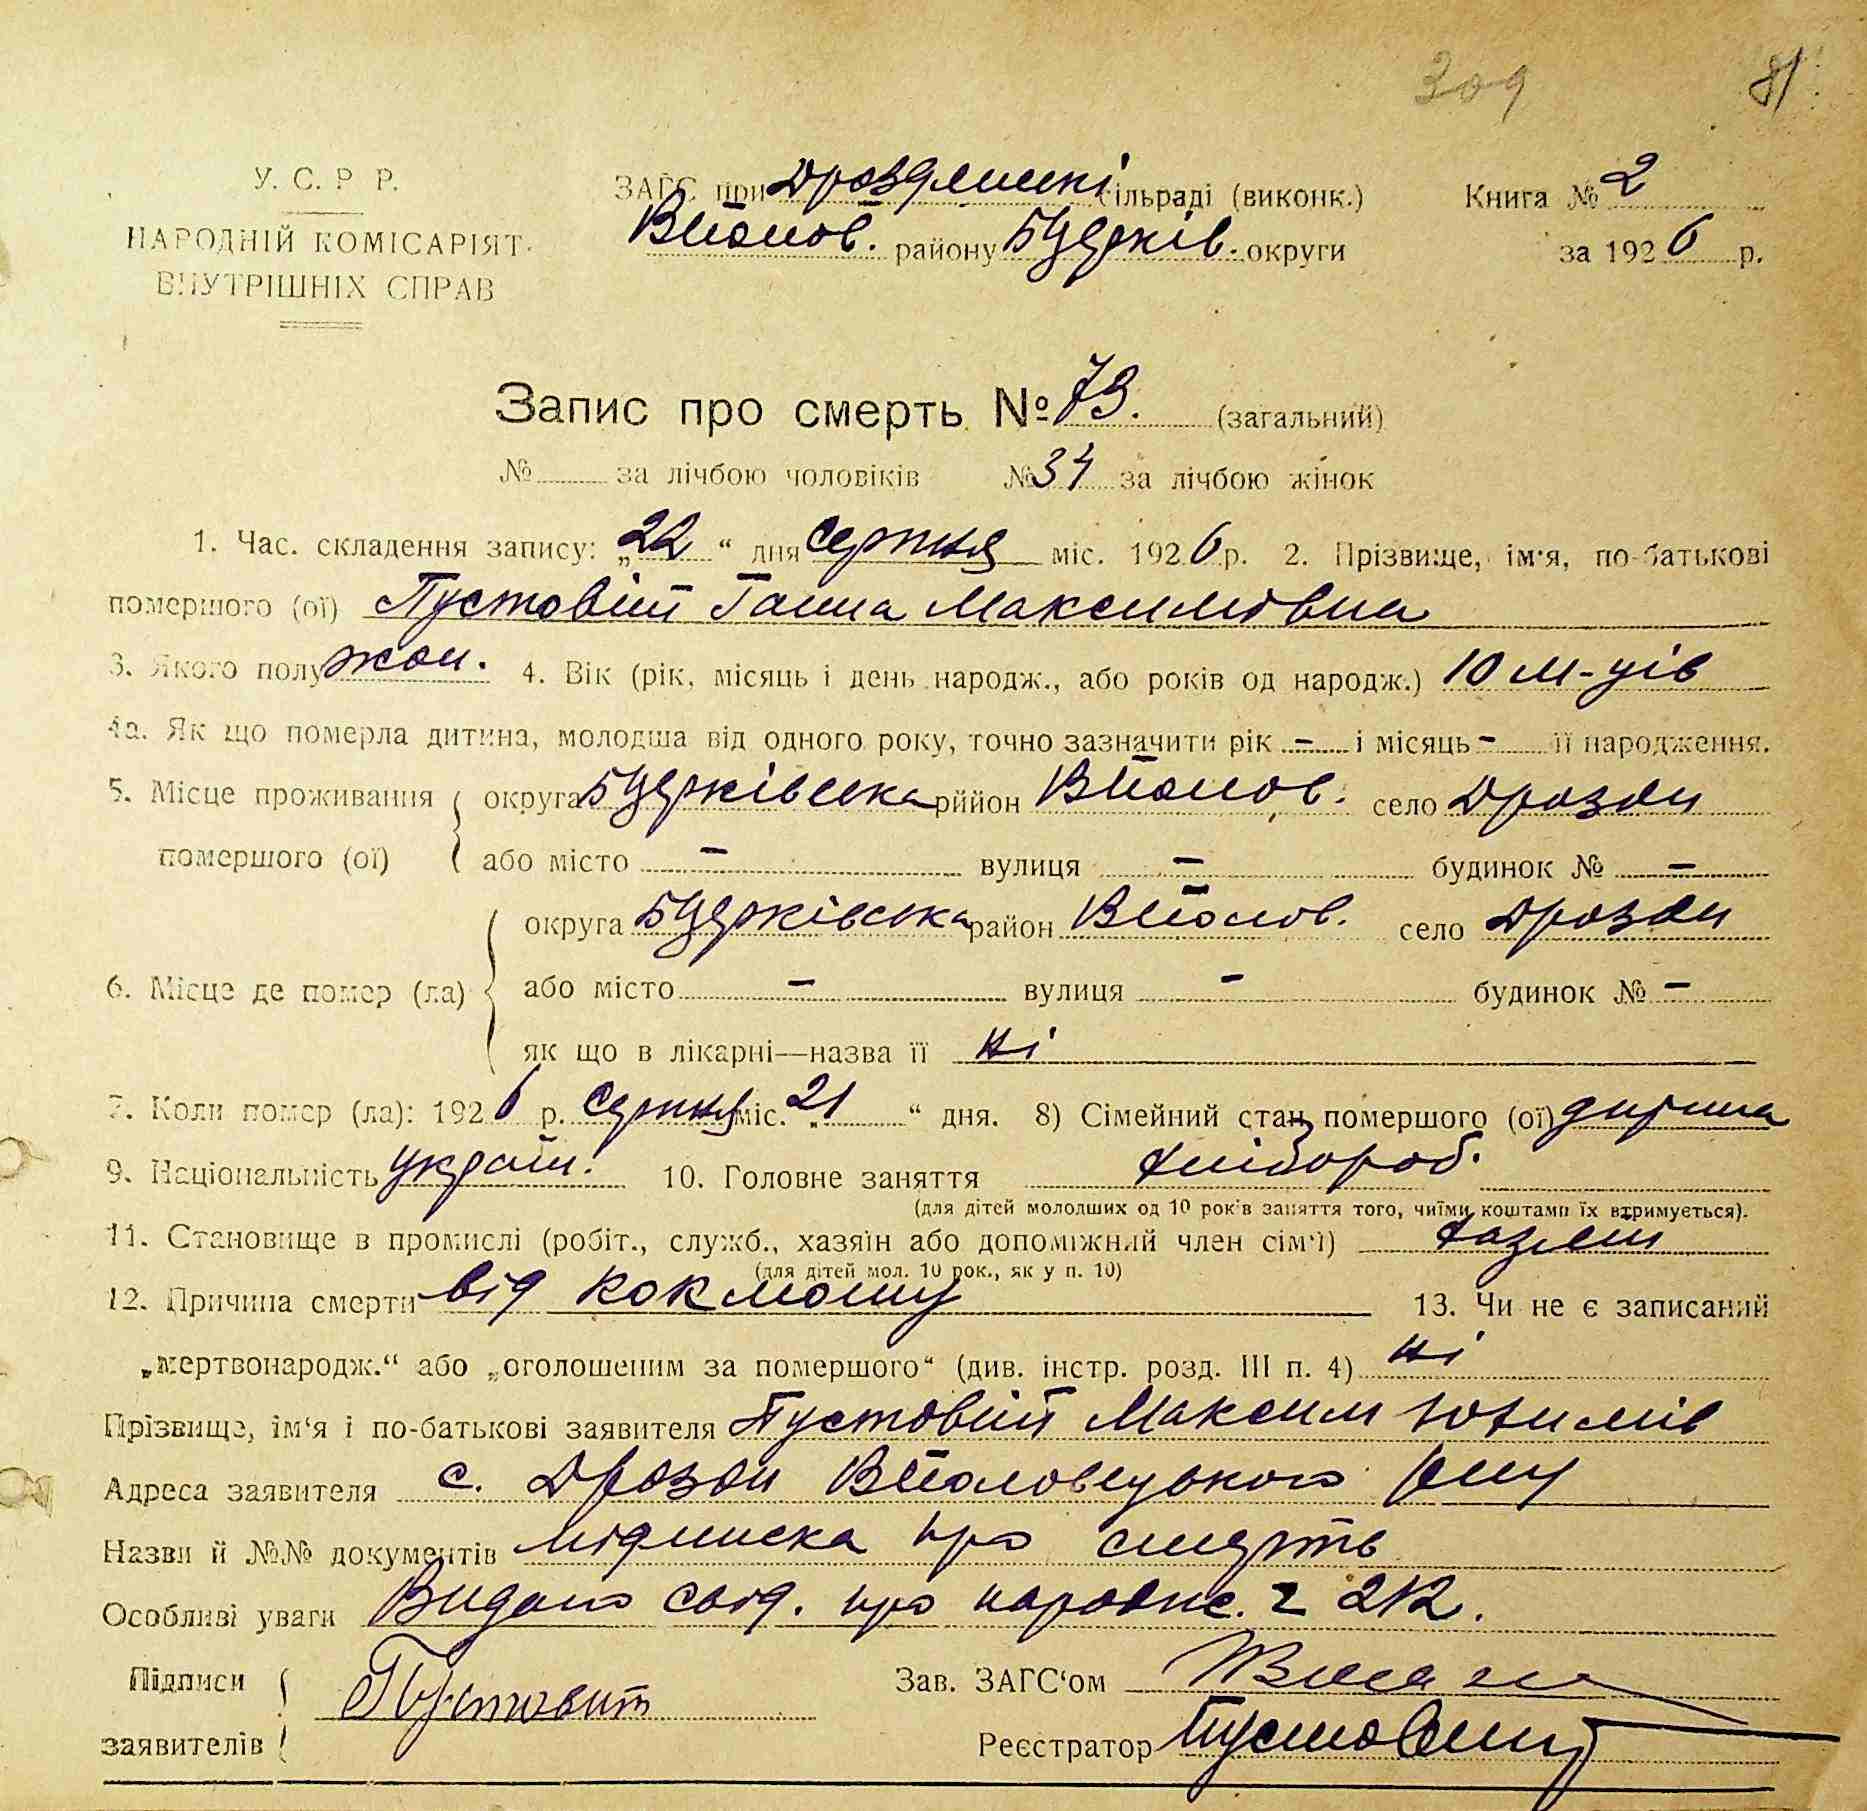 309 81
У. С. Р Р.
НАРОДНІЙ КОМІСАРІЯТ
ВНУТРІШНІХ СПРАВ
ЗАГС при Дроздянські сільраді (виконк.) Книга № 2
В Полов. району БЦерків. округи за 1926 р.
Запис про смерть № 73. (загальний)
№ за лічбою чоловіків № 34 за лічбою жінок
1. Час. складення запису: „22“ дня Серпня міс. 1926 р. 2. Прізвище, ім'я, по-батькові
помершого (ої) Пустовіт Ганна Максимівна
3. Якого полу жон. 4. Вік (рік, місяць і день народж., або років од народж.) 10 м-ців
4а. Як що померла дитина, молодша від одного року, точно зазначити рік – і місяць – її народження.
5. Місце проживання округа БЦерківська рййон ВПолов. село Дрозди
помершого (ої) або місто – вулиця – будинок № –
округа БЦерківська район ВПолов. село Дрозди
6. Місце де помер (ла) або місто – вулиця – будинок № –
як що в лікарні—назва її ні
7. Коли помер (ла): 1926 р. Серпня міс. „21“ дня. 8) Сімейний стан помершого (ої) дитина
9. Національність україн. 10. Головне заняття хлібороб.
(для дітей молодших од 10 рок'в заняття того, чиїми коштами їх втримується).
11. Становище в промислі (робіт., служб., хазяїн або допоміжний член сім'ї) хазяїн
(для дітей мол. 10 рок., як у п. 10)
12. Причина смерти від кокмошу 13. Чи не є записаний
„мертвонародж.“ або „оголошеним за помершого“ (див. інстр. розд. III п. 4) ні
Прізвище, ім'я і по-батькові заявителя Пустовіт Максим Юхимів
Адреса заявителя с. Дрозди ВПоловецького р-ну
Назви й №№ документів підписка про смерть
Особливі уваги Видано свід. про народж. 212.
Підписи Пустовит Зав. ЗАГС'ом
заявителів Реєстратор Пустовіт